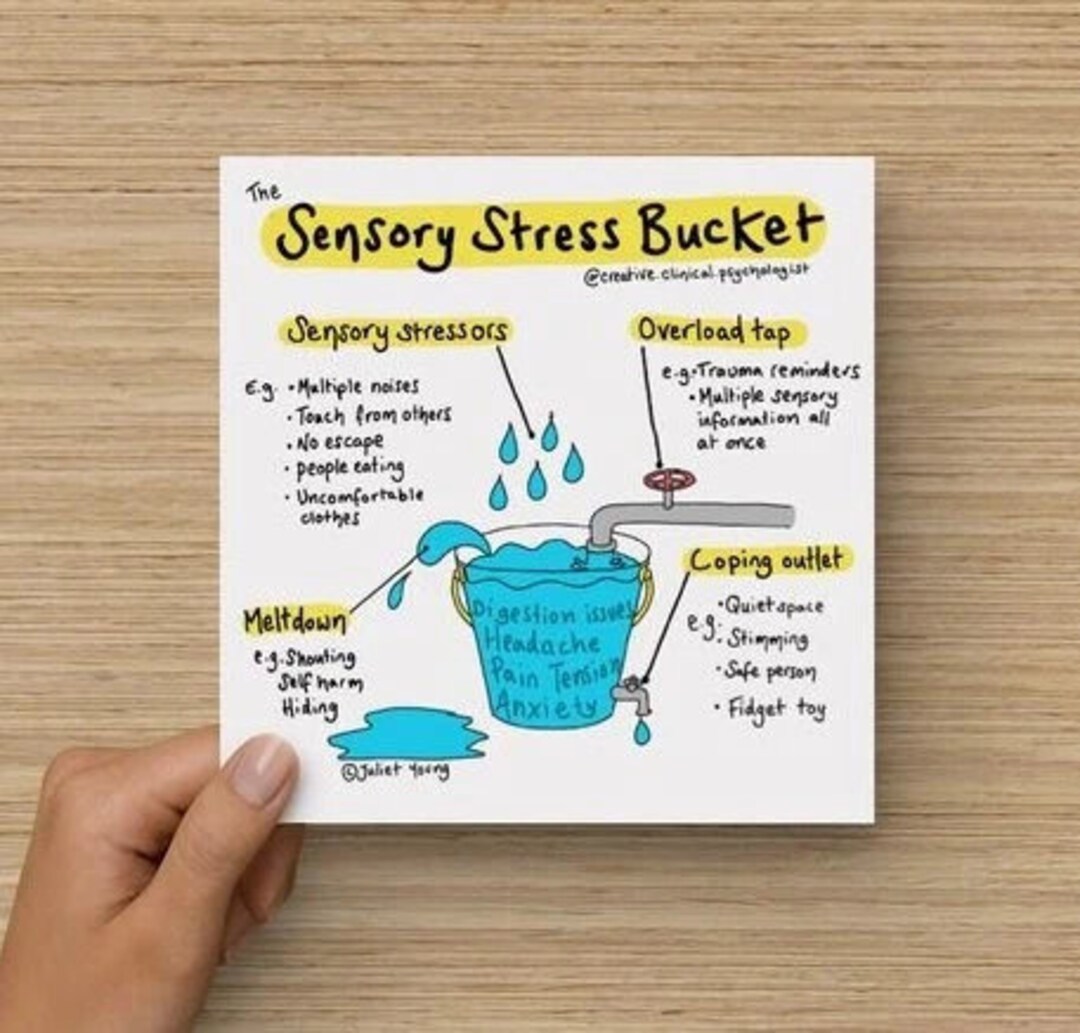 The
Sensory Stress Bucket
@creative.clinical.psychologist
Sensory stressors
E.g. • Multiple noises
• Touch from others
• No escape
• people eating
• Uncomfortable
clothes
Overload tap
e.g. • Trauma reminders
• Multiple sensory
information all
at once
Meltdown
e.g. Shouting
Self harm
Hiding
Digestion issues
Headache
Pain Tension
Anxiety
Coping outlet
e.g. • Quiet space
• Stimming
• Safe person
• Fidget toy
©Juliet Young